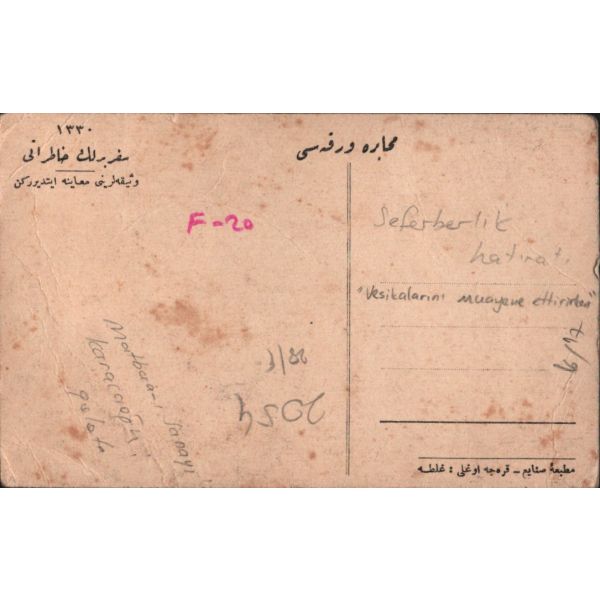 ١٣٣٠
سفربرلك خاطراتی
وثیقه‌لرینی معاینه ایتدیررکن
مخابره ورقه‌سی
F-20
Seferberlik
hatıratı
"Vesikalarını muayene ettirirken"
Matbaa-ı Sanayi
Karacaoğlu
galata
2054
مطبعۀ صنایع ـ قره‌جه اوغلی : غلطه